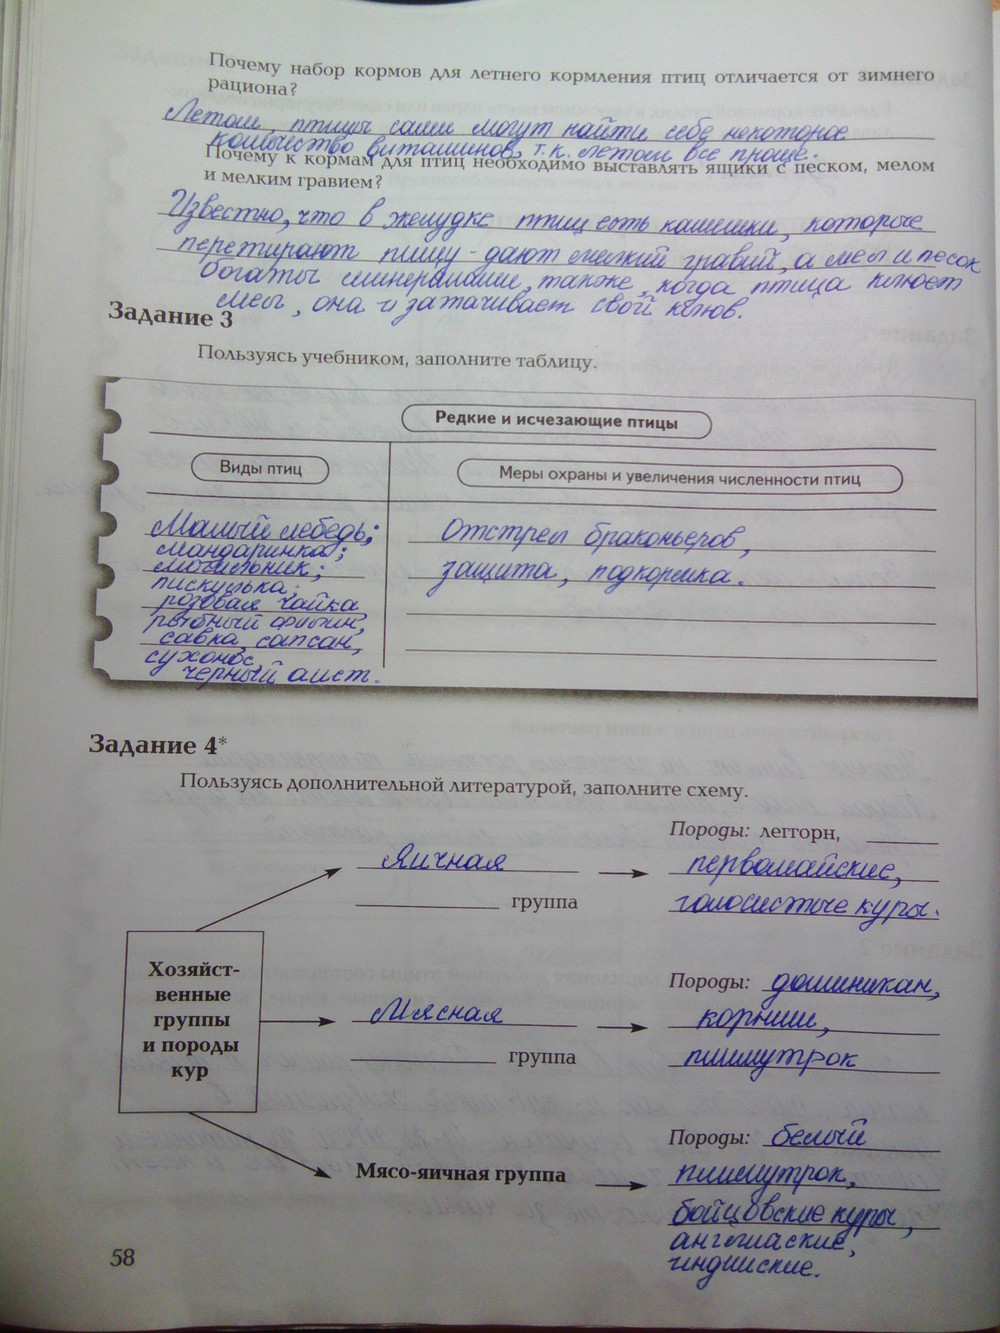 Почему набор кормов для летнего кормления птиц отличается от зимнего
рациона?
Летом, птицы сами могут найти себе некоторое
количество витаминов, т.к. летом все проще.
Почему к кормам для птиц необходимо выставлять ящики с песком, мелом
и мелким гравием?
Известно, что в желудке птиц есть камешки, которые
перетирают пищу - дают мелкий гравий, а мел и песок
богаты минералами, также, когда птица клюет
мел, она и затачивает свой клюв.
Задание 3
Пользуясь учебником, заполните таблицу.
Редкие и исчезающие птицы
Виды птиц
Меры охраны и увеличения численности птиц
Малый лебедь;
мандаринка;
могильник;
пискулька;
розовая чайка
рыбный филин,
савка, сапсан,
сухонос,
черный аист.
Отстрел браконьеров,
защита, подкормка.
Задание 4*
Пользуясь дополнительной литературой, заполните схему.
Хозяйст-
венные
группы
и породы
кур
Яичная
группа
Породы: леггорн,
первомайские,
голосистые куры.
Мясная
группа
Породы: доминикан,
корниш,
плимутрок
Мясо-яичная группа
Породы: белый
плимутрок,
бойцовские куры,
английские,
индийские.
58